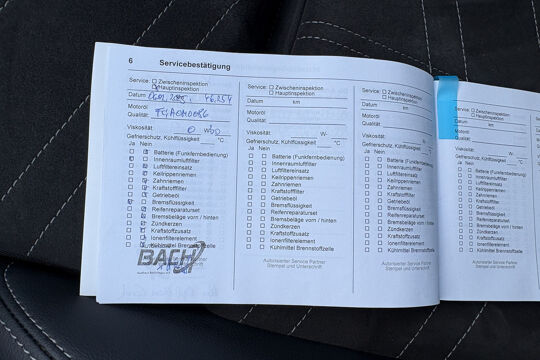 6 Servicebestätigung
Service: Zwischeninspektion
Hauptinspektion
Datum 46.254
Motoröl
Qualität:
Viskosität: 0 W
Gefrierschutz, Kühlflüssigkeit: °C
Ja Nein
Batterie (Funkfernbedienung)
Innenraumluftfilter
Luftfiltereinsatz
Keilrippenriemen
Zahnriemen
Kraftstofffilter
Getriebeöl
Bremsflüssigkeit
Reifenreparaturset
Bremsbeläge vorn / hinten
Zündkerzen
Kraftstoffzusatz
Ionenfilterelement
Kühlmittel Brennstoffzelle
BACH
Service: Zwischeninspektion
Hauptinspektion
Datum km
Motoröl
Qualität:
Viskosität: W-
Gefrierschutz, Kühlflüssigkeit: °C
Ja Nein
Batterie (Funkfernbedienung)
Innenraumluftfilter
Luftfiltereinsatz
Keilrippenriemen
Zahnriemen
Kraftstofffilter
Getriebeöl
Bremsflüssigkeit
Reifenreparaturset
Bremsbeläge vorn / hinten
Zündkerzen
Kraftstoffzusatz
Ionenfilterelement
Kühlmittel Brennstoffzelle
Autorisierter Service Partner
Stempel und Unterschrift
Service: Zwischeninspektion
Hauptinspektion
Datum km
Motoröl
Qualität:
Viskosität: W-
Gefrierschutz, Kühlflüssigkeit: °C
Ja Nein
Batterie (Funkfernbedienung)
Innenraumluftfilter
Luftfiltereinsatz
Keilrippenriemen
Zahnriemen
Kraftstofffilter
Getriebeöl
Bremsflüssigkeit
Reifenreparaturset
Bremsbeläge vorn / hinten
Zündkerzen
Kraftstoffzusatz
Ionenfilterelement
Kühlmittel Brennstoffzelle
Autorisierter Service Partner
Stempel und Unterschrift
Service: Zwischeninspektion
Hauptinspektion
Datum km
Motoröl
Qualität:
Viskosität: W-
Gefrierschutz, Kühlflüssigkeit: °C
Ja Nein
Batterie (Funkfernbedienung)
Innenraumluftfilter
Luftfiltereinsatz
Keilrippenriemen
Zahnriemen
Kraftstofffilter
Getriebeöl
Bremsflüssigkeit
Reifenreparaturset
Bremsbeläge vorn / hinten
Zündkerzen
Kraftstoffzusatz
Ionenfilterelement
Kühlmittel Brennstoffzelle
Autorisierter Service Partner
Stempel und Unterschrift